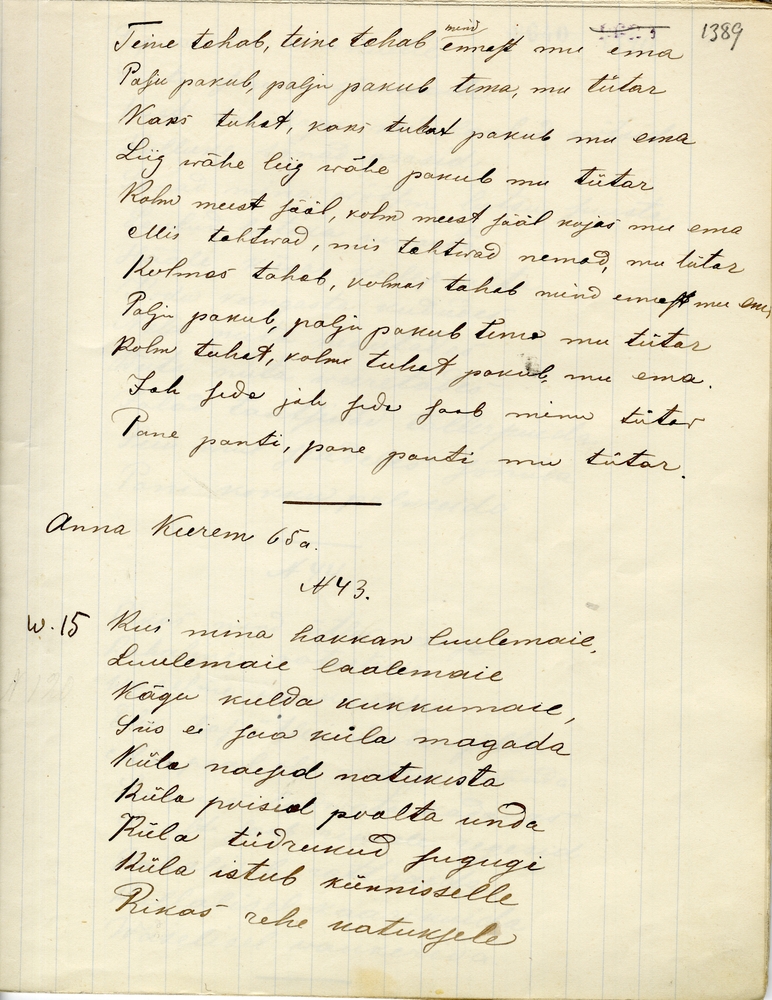 1389
Teine tahab, teine tahab mind ennast mu ema
Palju pakub, palju pakub tema, mu tütar
Kaks tuhat, kaks tuhat pakub mu ema
Liig wähe liig wähe pakub mu tütar
Kolm meest sääl, kolm meest sääl kajas mu ema
Mis tahtwad, mis tahtwad nemad, mu tütar
Kolmas tahab, kolmas tahab mind ennast mu ema
Palju pakub, palju pakub tema mu tütar
Kolm tuhat, kolm tuhat pakub, mu ema.
Jah seda jah seda saab minu tütar
Pane panti, pane panti mu tütar.
Anna Kurem 65 a.
N 43.
W. 15 Kui mina hakkan luulemaie,
Luulemaie laalemaie
Kägu kulda kukkumaie,
Siis ei saa küla magada
Küla naesed natukista
Küla poisid poolta unda
Küla tüdrukud sugugi
Küla istub künnisselle
Rikas rehe katuksele